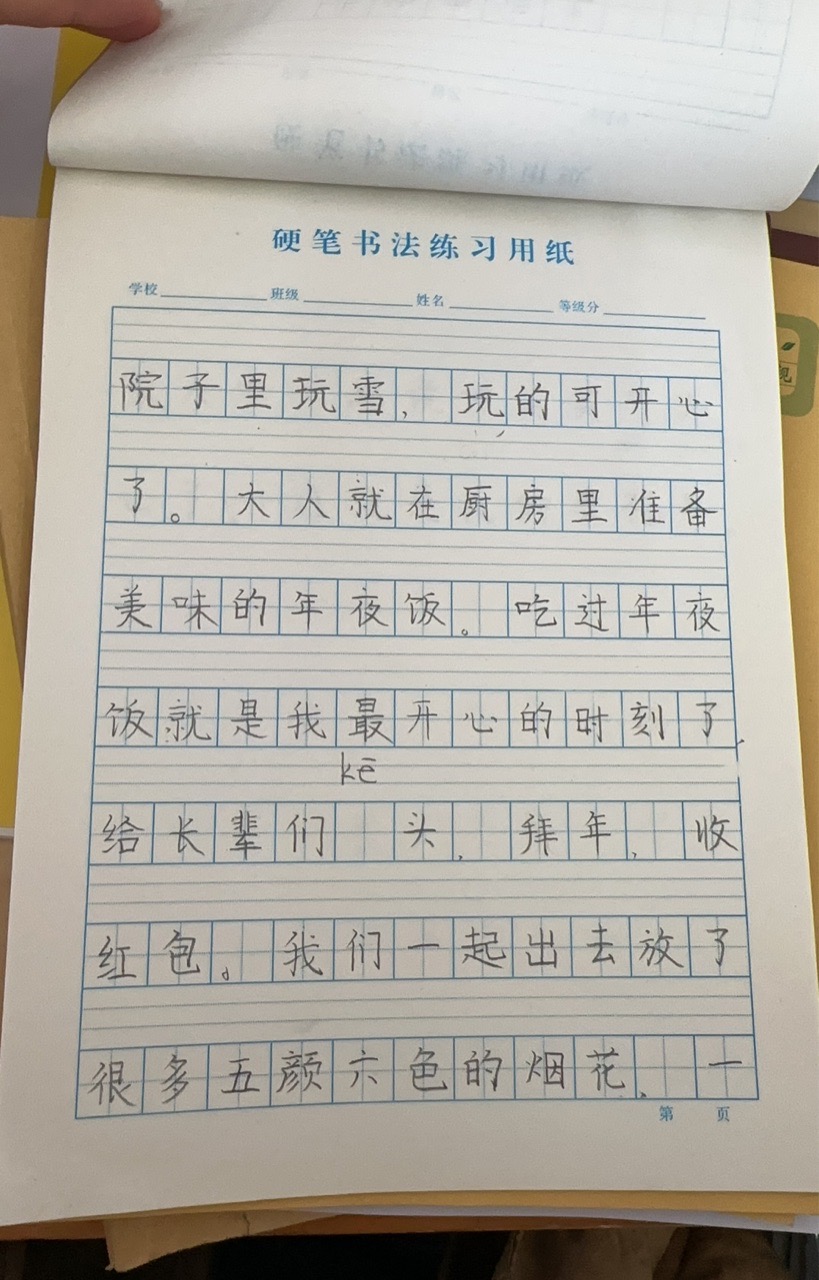 硬笔书法练习用纸
学校 班级 姓名 等级分
院子里玩雪，玩的可开心
了。大人就在厨房里准备
美味的年夜饭。吃过年夜
饭就是我最开心的时刻了
kē
给长辈们 头，拜年，收
红包。我们一起出去放了
很多五颜六色的烟花、一
第 页